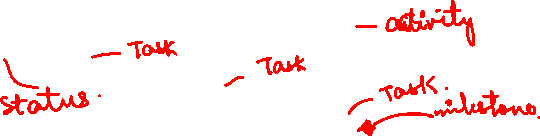 activity
Task
Task
status.
Task.
milestone